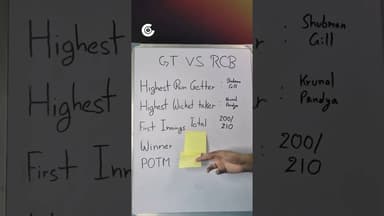 GT VS RCB
Highest Run Getter : Shubman
Gill
Highest Wicket taker : Krunal
Pandya
First Innings Total 200/
210
Winner
POTM
Highest
Highest
First In
Shubman
Gill
Krunal
Pandya
200/
210